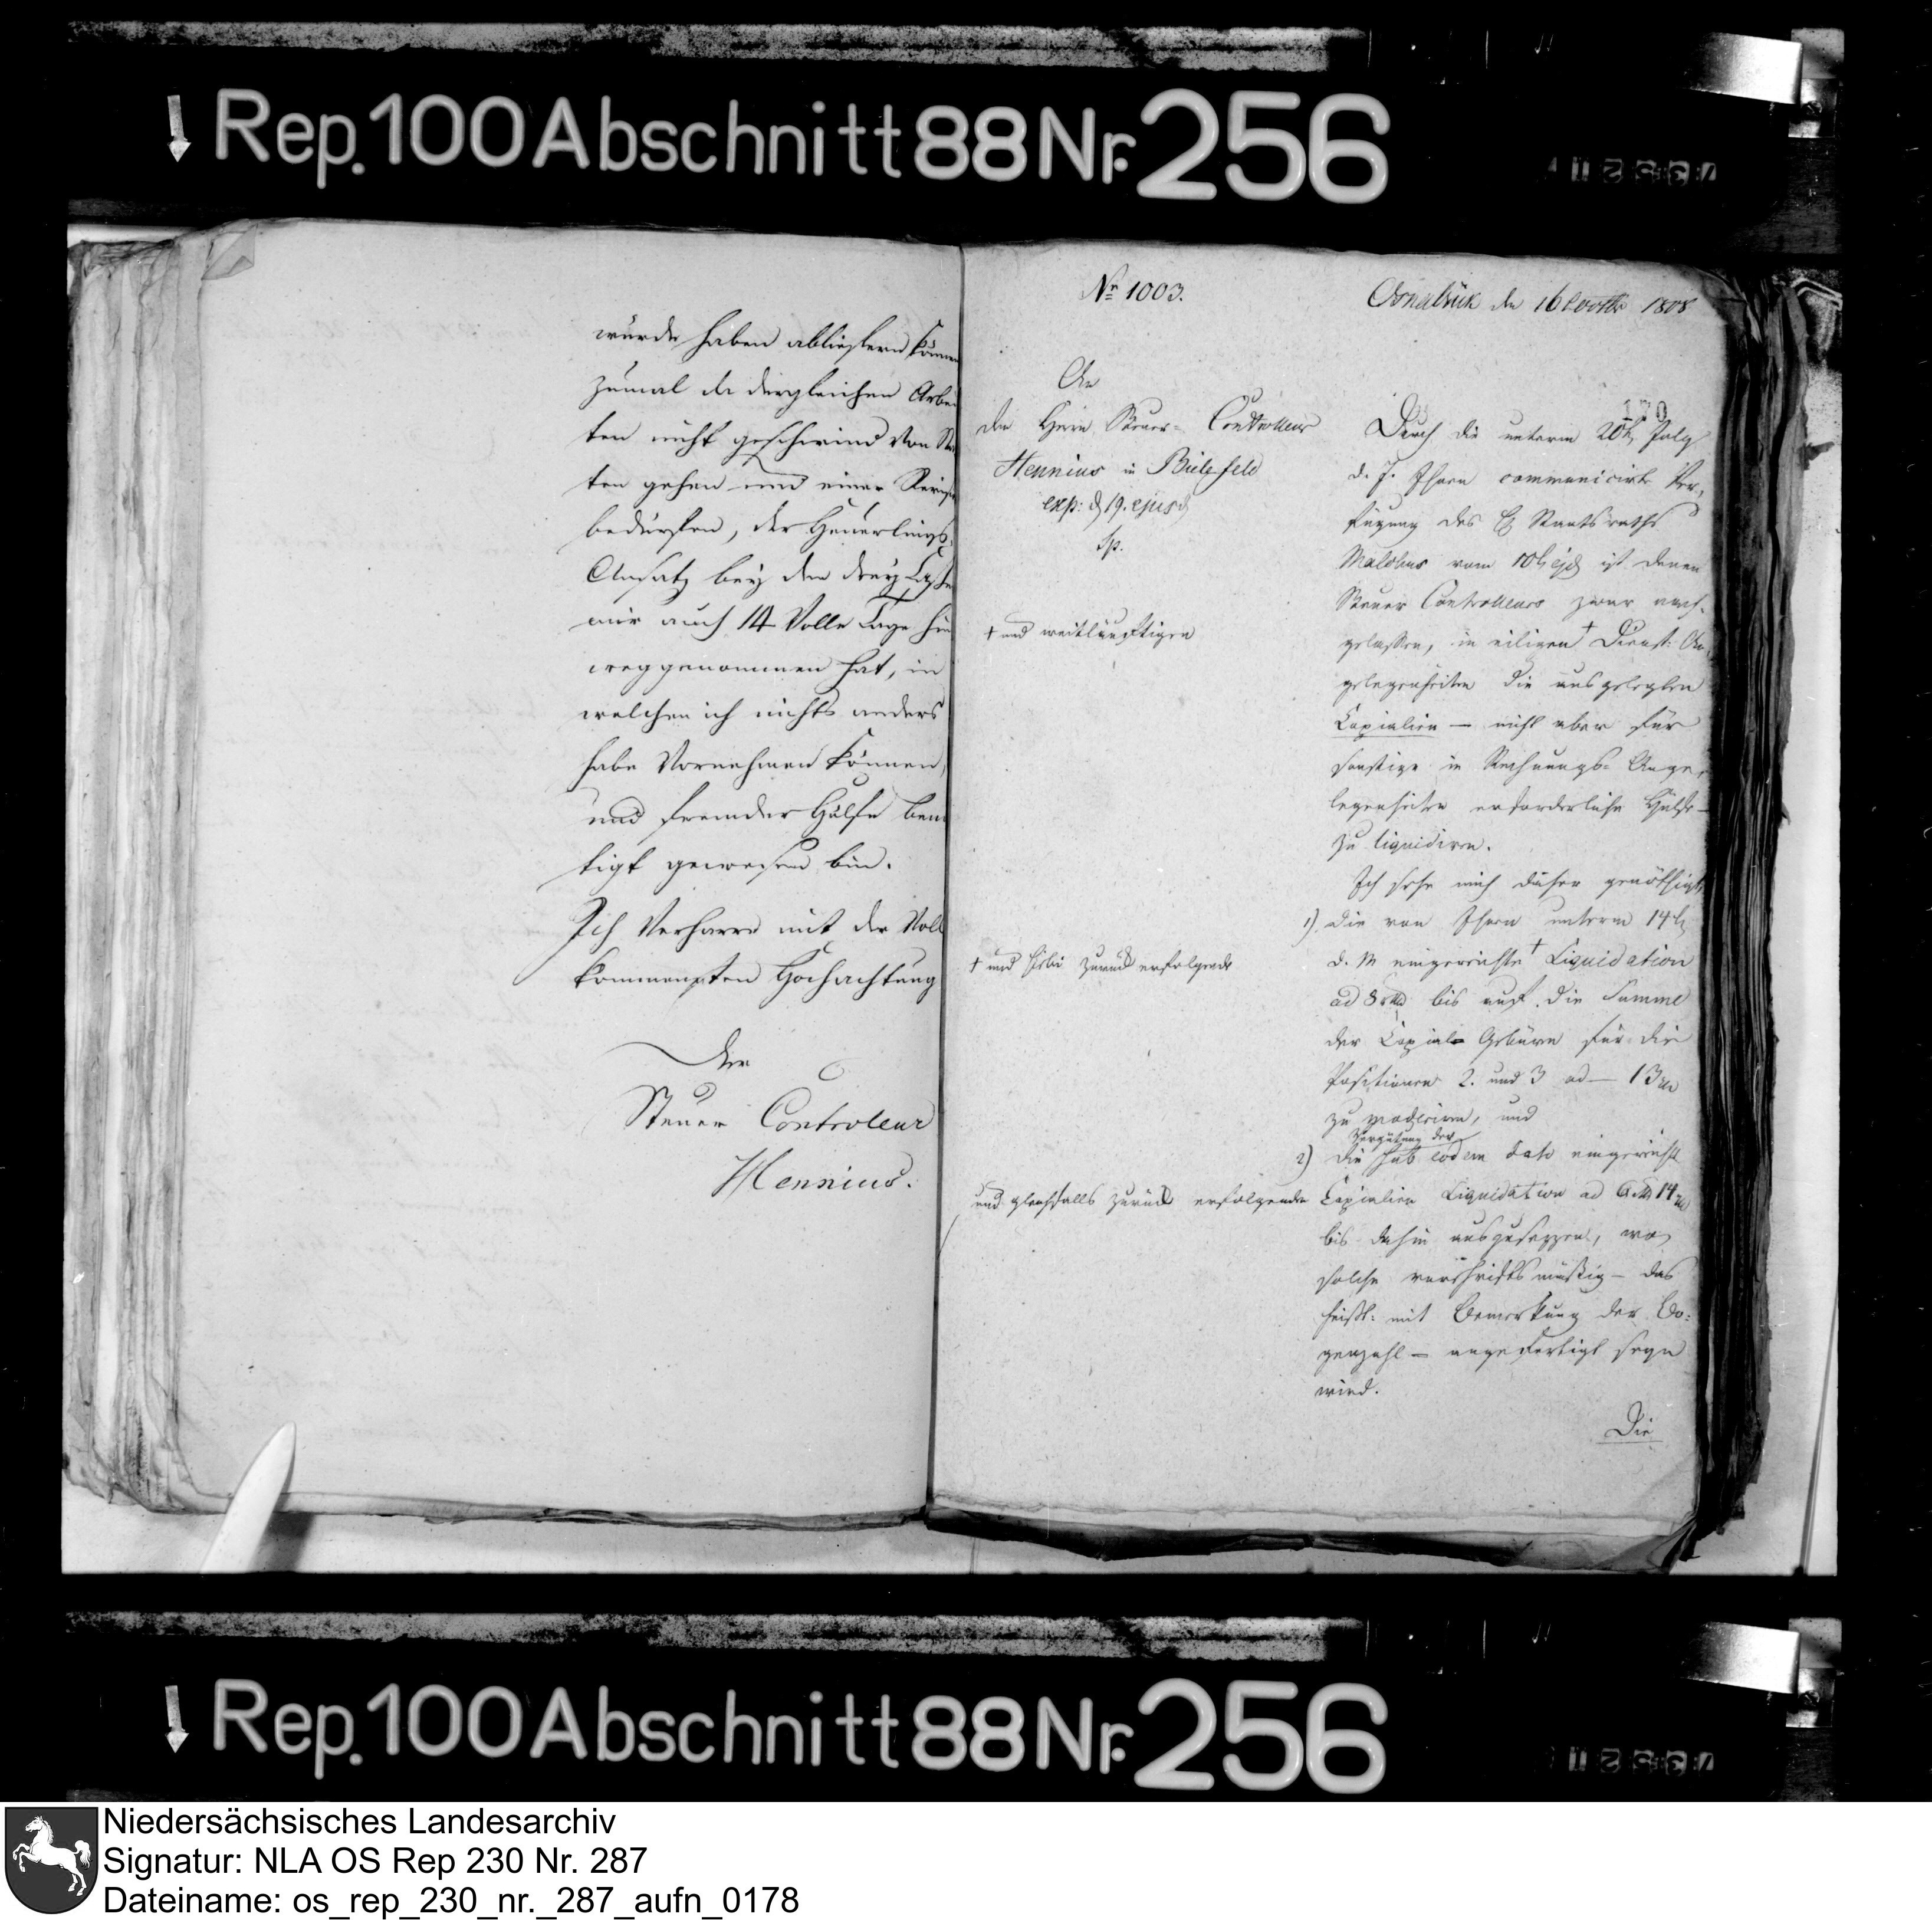 Rep. 100 Abschnitt 88 Nr. 256
würde haben abliefern können
zumal da dergleichen Arbei
ten nicht geschwind von Stat
ten gehen und einer Revision
bedürfen, der Heuerlings
Ansatz bey den drey Listen
mir auch 14 Volle Tage hin
weggenommen hat, in
welchen ich nichts anders
habe Vornehmen können,
und fremder Hülfe benö
tigt gewesen bin.
Ich Verharre mit der Voll
kommensten Hochachtung
Der
Steuer Controleur
Hennius.
Nr. 1003.
Osnabrük den 16 1808
An
den Herrn Steuer-Controlleur
Hennius in Bielefeld
exp: d 19. ejusd
Sp.
170
Durch die unterm 20t July
d. J. Ihnen communicirte Ver-
fügung des H Staatsraths
Malchus vom 10t ejd ist denen
Steuer Controlleurs zwar nach-
gelassen, in eiligen † Dienst-An-
† und weitläuftigen
gelegenheiten die ausgelegten
Copialien — nicht aber für
sonstige in Rechnungs-Ange-
legenheiten erforderliche Hülfe —
zu liquidiren.
Ich sehe mich daher genöthigt,
1) die von Ihnen unterm 14t
d. M eingereichte † Liquidation
† und hiebei zurück erfolgende
ad 8 bis auf die Summe
der Copial Gebüren für die
Positionen 2. und 3 ad — 13
zu moderiren, und
Vergütung der
2) die sub eodem dato eingereichte
und gleichfalls zurück erfolgende
Copialien Liquidation ad 6 14
bis dahin auszusezzen, wo
solche vorschriftsmäßig — das
heißt: mit Bemerkung der Bo-
genzahl — angefertigt seyn
wird.
Die
Rep. 100 Abschnitt 88 Nr. 256
Niedersächsisches Landesarchiv
Signatur: NLA OS Rep 230 Nr. 287
Dateiname: os_rep_230_nr._287_aufn_0178